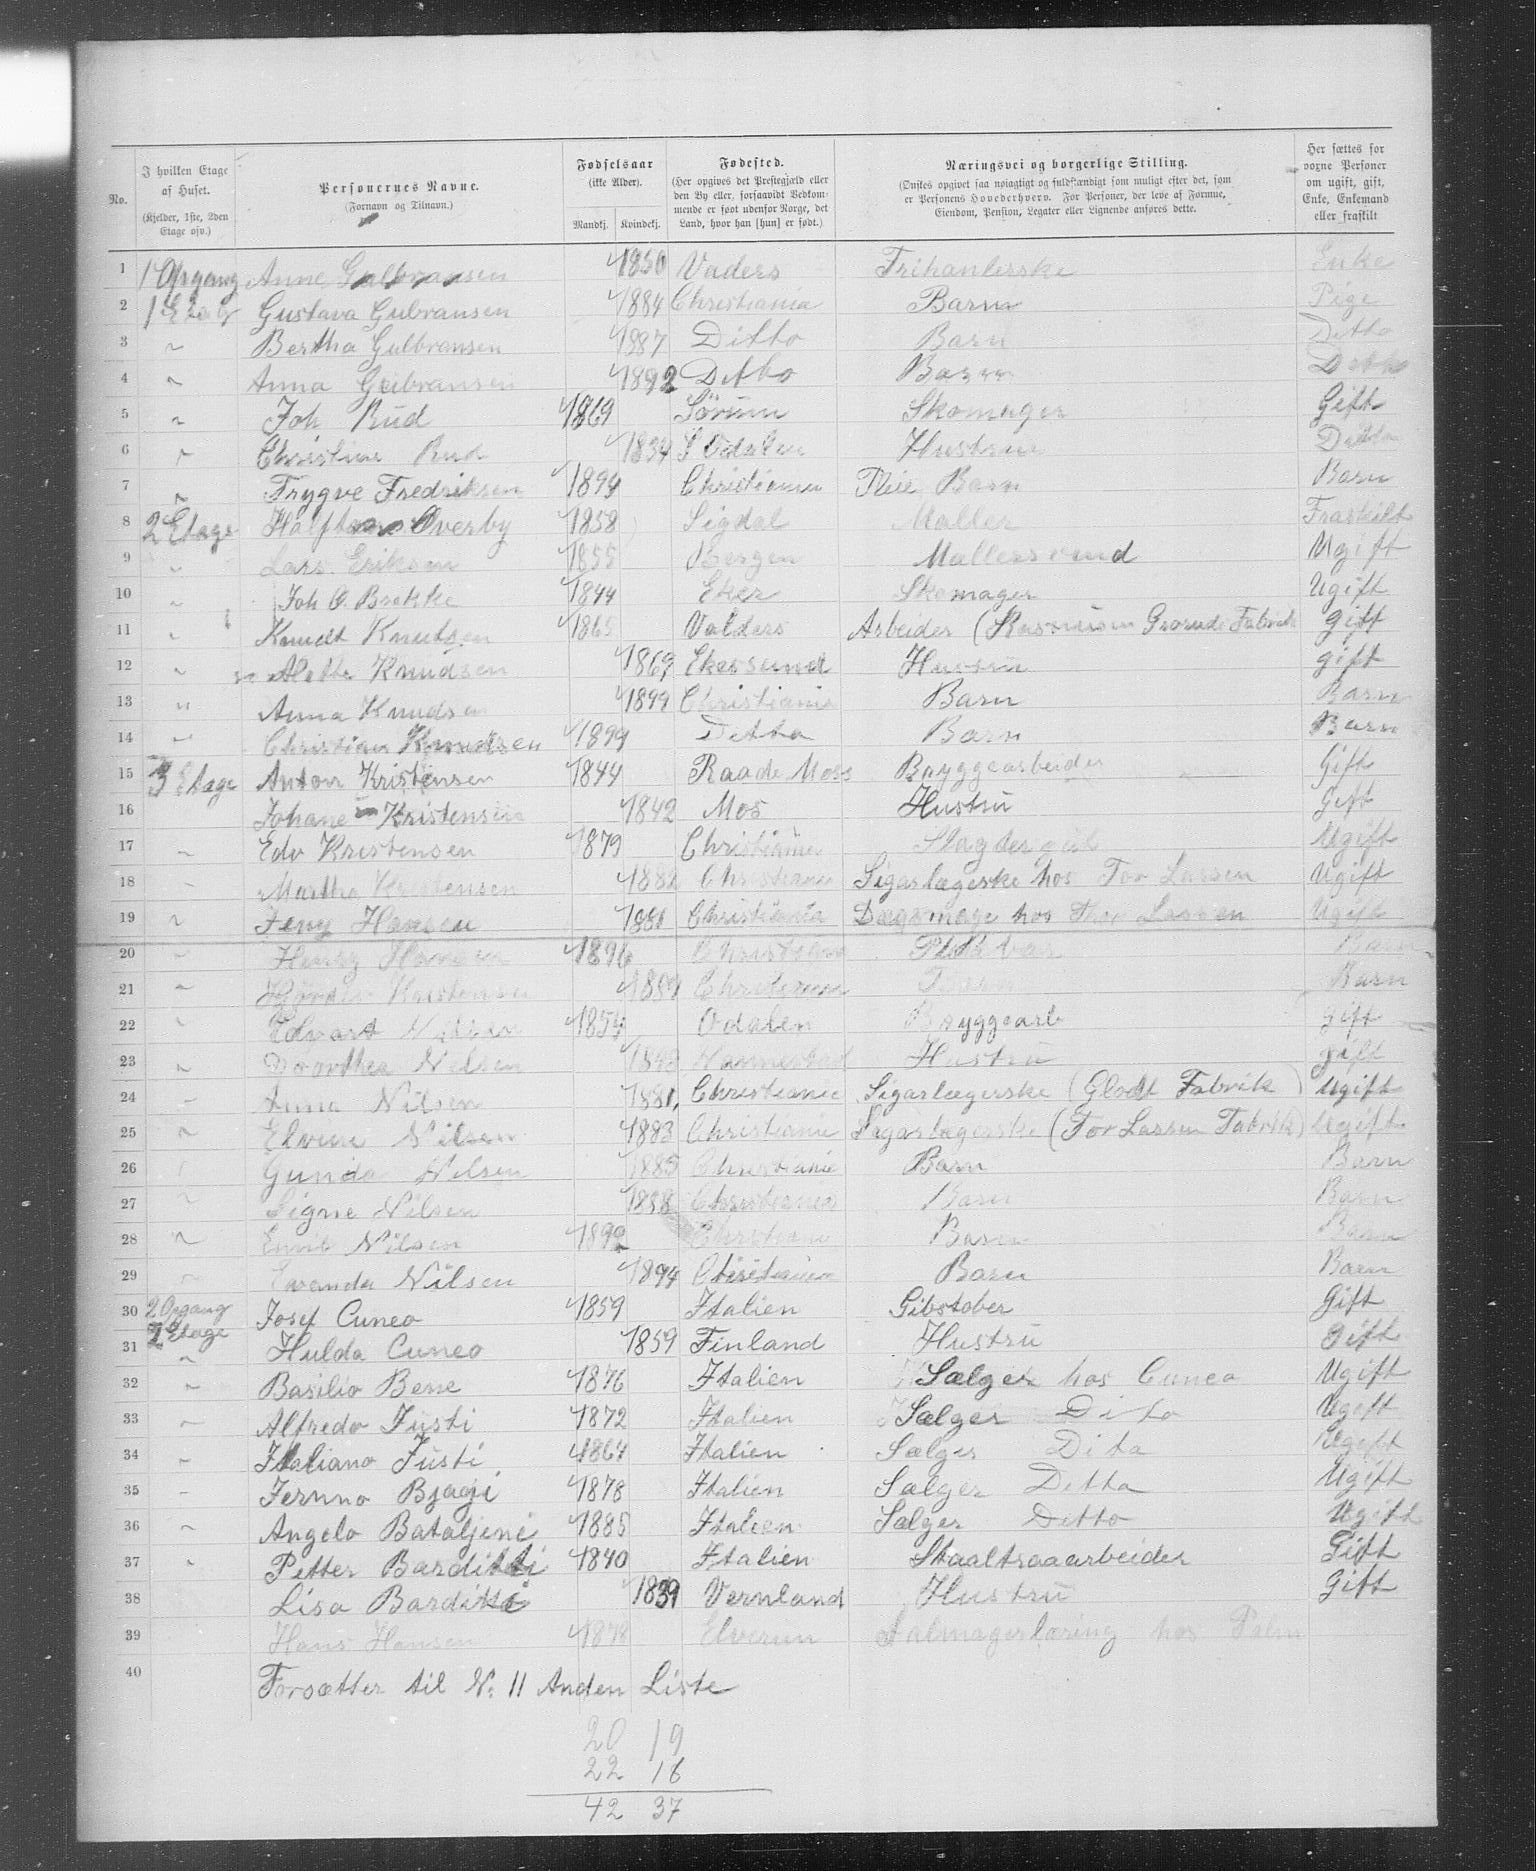 No. I hvilken Etage af Huset. (Kjelder, 1ste, 2den Etage osv.) Personernes Navne. (Fornavn og Tilnavn.) Fødselsaar (ikke Alder). Mandkj. Kvindekj. Fødested. (Her opgives det Prestegjæld eller den By eller, forsaavidt Vedkommende er født udenfor Norge, det Land, hvor han [hun] er født.) Næringsvei og borgerlige Stilling. (Ønskes opgivet saa nøiagtigt og fuldstændigt som muligt efter det, som er Personens Hovederhverv. For Personer, der leve af Formue, Eiendom, Pension, Legater eller Lignende anføres dette. Her sættes for voxne Personer om ugift, gift, Enke, Enkemand eller fraskilt
1 1 Opgang Anne Gulbransen 1850 Vaders Frihanlerske Enke
2 1 Etag Gustava Gubransen 1884 Christiania Barn Pige
3 " Bertha Gulbransen 1887 Ditto Barn Ditto
4 " Anna Gulbransen 1892 Ditto Barn Ditto
5 " Joh Rud 1869 Sörum Skomager Gift
6 " Christine Rud 1834 S Odalen Hustru Ditto
7 " Trygve Fredriksen 1894 Christiania Pleie Barn Barn
8 2 Etage Halftan Overby 1858 Sigdal Maller Fraskilt
9 " Lars Eriksen 1855 Bergen Mallersvend Ugift
10 " Joh O. Brekke 1844 Eker Skomager Ugift
11 " Knudt Knutsen 1865 Valders Arbeider (Rasmusen Grorude Fabrik gift
12 " Knudsen 1869 Ekersund Hustru gift
13 " Anna Knudsen 1899 Christiania Barn Barn
14 " Christian Knudsen 1899 Ditto Barn Barn
15 3 Etage Anton Kristensen 1844 Raade Moss Bryggearbeider Gift
16 Johane Kristensen 1842 Mos Hustrü Gift
17 " Edv Kristensen 1879 Christiania Ugift
18 " Martha Kristensen 1882 Christiania Sigarlægerske hos Tor Lassen Ugift
19 " Jeny Hansen 1881 Christiania hos Thor Lassen Ugift
20 " Hansen 1896 Christiania Barn
21 " Kristensen Christiania Barn Barn
22 " Edvart Nilsen 1854 Odalen Bryggearb gift
23 " Dorothea Nilsen Nannestad Hustrü gift
24 " Anna Nilsen 1881, Christianie Sigarlægerske (Glodt Fabrik) ugift
25 " Elvine Nilsen 1883 Christianie Sigarlægerske (Tor Lassen Fabrik) ugift
26 " Gunda Nilsen 1885 Christianie Barn Barn
27 " Signe Nilsen 1888 Christiania Barn Barn
28 " Emil Nilsen 1892 Christiane Barn Barn
29 " Evanda Nilsen 1894 Christiania Barn Barn
30 2 Opgang Josef Cuneo 1859 Italien Gibstober Gift
31 2 Etage " Hulda Cuneo 1859 Finland Hustrü Gift
32 " Basilio Bene 1876 Italien Sælger hos Cuneo Ugift
33 " Alfredo Justi 1872 Italien Sælger Dito Ugift
34 " Italiano Justi 1864 Italien Sælger Dito Ugift
35 " Jernno Bjagi 1878 Italien Sælger Ditto Ugift
36 " Angelo Bataljeni 1885 Italien Sælger Ditto Ugift
37 " Petter Barditti 1840 Italien Staaltraaarbeider Gift
38 Lisa Barditti 1839 Vernland Hustrü Gift
39 Hans Hansen 1878 Elverum Salmagerlæring hos Palm
40 Forsætter til N: 11 Anden Liste
20 19
22 18
42 37